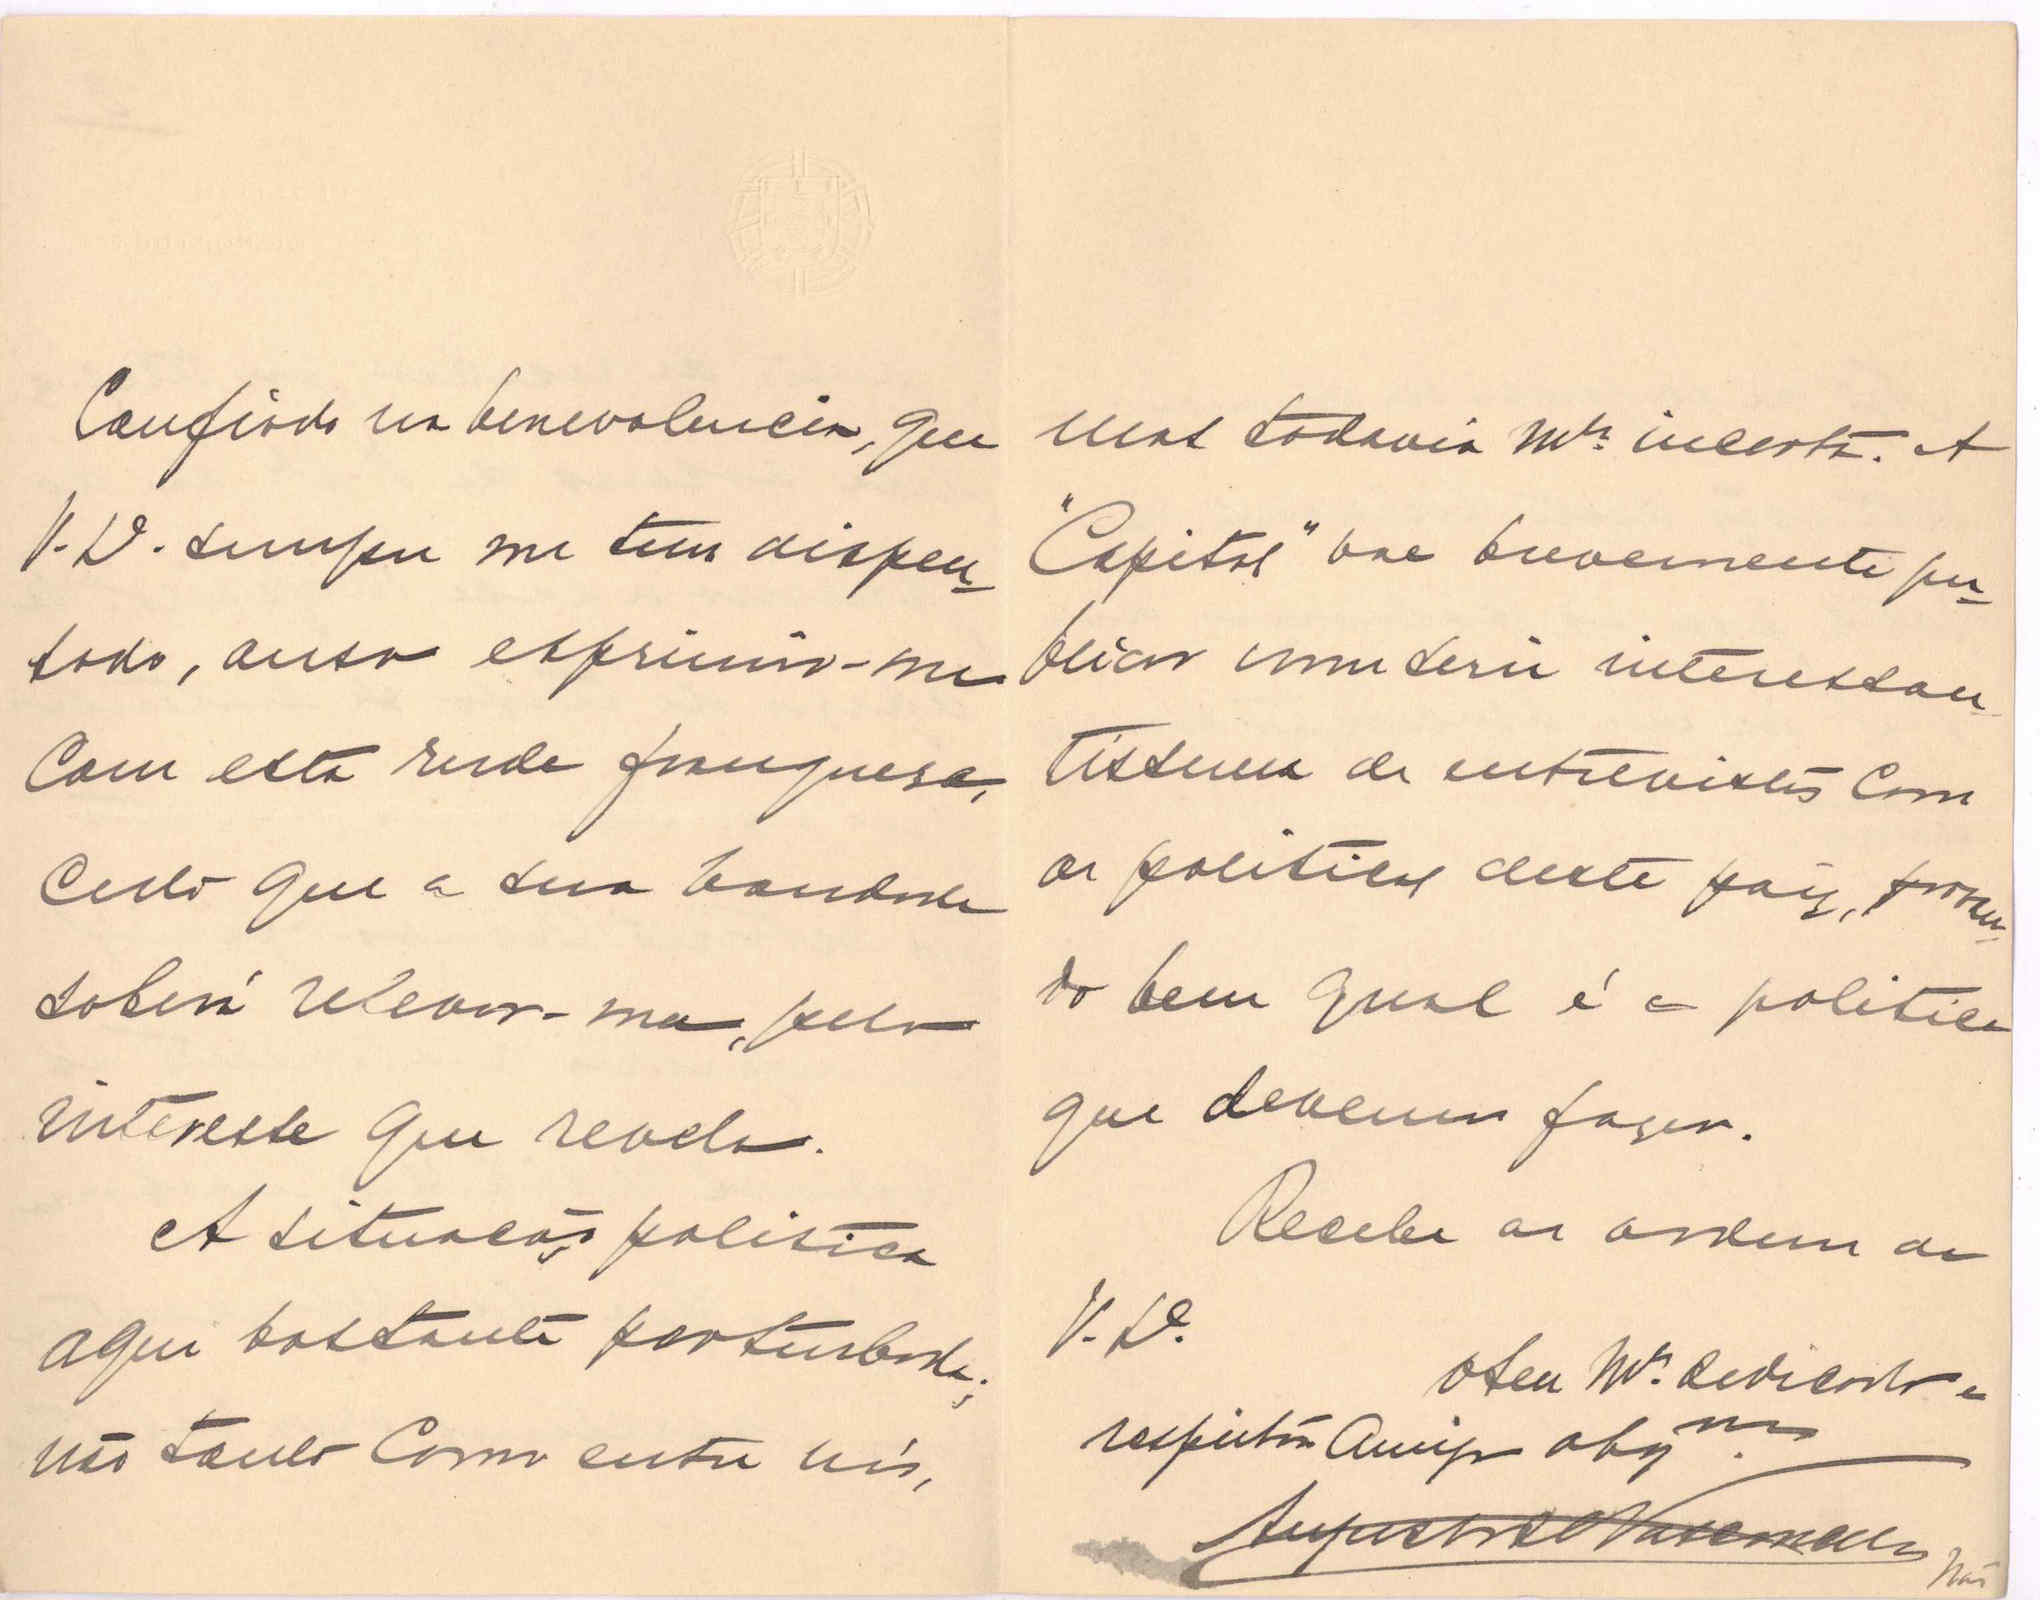 Confiado na benevolencia, que
V. Ex.ª sempre me tem dispen-
sado, ouso exprimir-me
com esta rude franqueza,
certo que a sua bondade
saberá relevar-ma, pelo
interesse que revela.
A situação politica
aqui bastante perturbada;
não tanto como entre nós,
mas todavia mt.º incerta. A
"Capital" vae brevemente pu-
blicar uma serie interessan-
tissima de entrevistas com
os politicos deste paiz,
do bem qual é a politica
que devemos fazer.
Receba as ordens de
V. Ex.ª
o seu Mt.º dedicado e
respeitoso Amigo obg.mo
Augusto de Vasconcellos